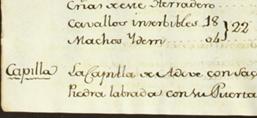 Criar este Herradero
Cavallos inserbibles 18
Machos Ydem 04 } 22
Capilla La Capilla de Adove con Sac
Piedra labrada con su Puerta